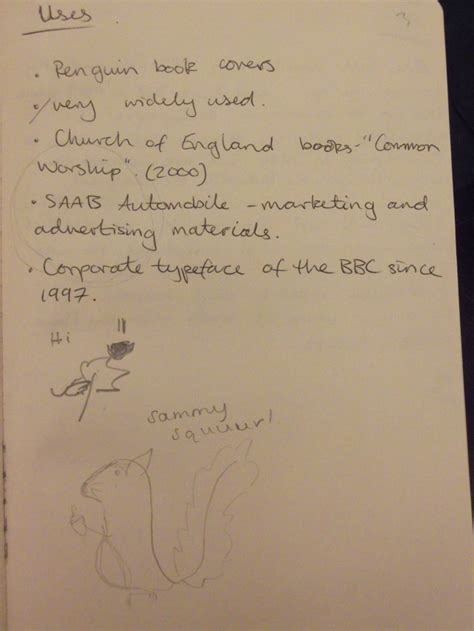 Uses
3
• Penguin book covers
• very widely used.
• Church of England books - "Common
Worship". (2000)
• SAAB Automobile - marketing and
advertising materials.
• Corporate typeface of the BBC since
1997.
Hi
sammy